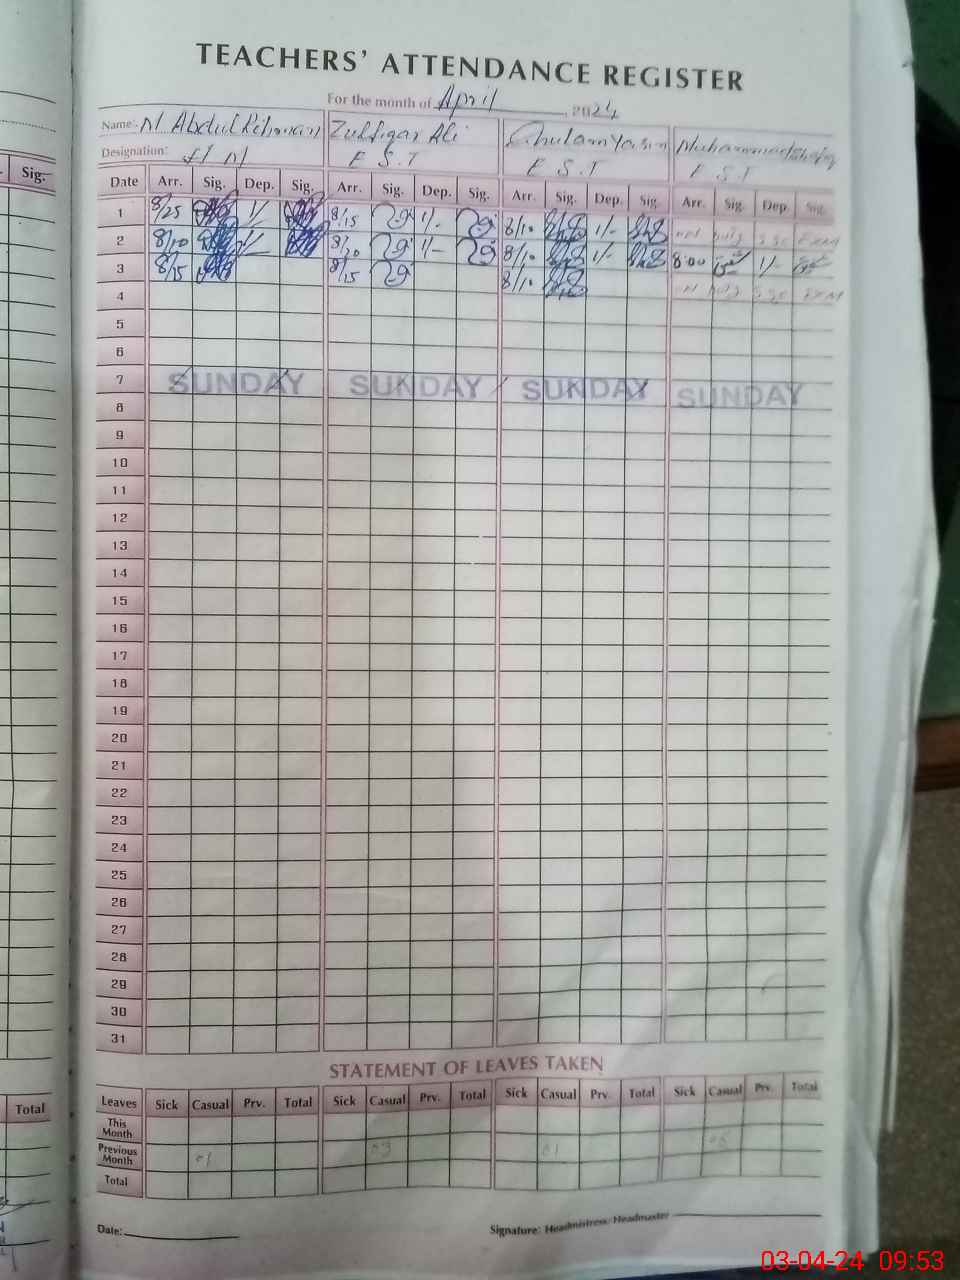 TEACHERS' ATTENDANCE REGISTER
For the month of April, 2024
Name: M Abdul Rehman Zulfiqar Ali Ghulam Yasin Muhammad
Designation: H M E S.T E S.T E S.T
Sig.
Date Arr. Sig. Dep. Sig. Arr. Sig. Dep. Sig. Arr. Sig. Dep. Sig. Arr. Sig. Dep. Sig.
1 8/25 1/- 8/15 1/- 8/10 1/- on duty SSC EXAM
2 8/10 1/- 8/20 1/- 8/10 1/- 8:00 1/-
3 8/15 8/15 8/10 on duty SSC EXAM
4
5
6
7 SUNDAY SUNDAY SUNDAY SUNDAY
8
9
10
11
12
13
14
15
16
17
18
19
20
21
22
23
24
25
26
27
28
29
30
31
STATEMENT OF LEAVES TAKEN
Leaves Sick Casual Prv. Total Sick Casual Prv. Total Sick Casual Prv. Total Sick Casual Prv. Total
This Month
Previous Month 01 03 01
Total
Total
Date: Signature: Headmistress/Headmaster
03-04-24 09:53